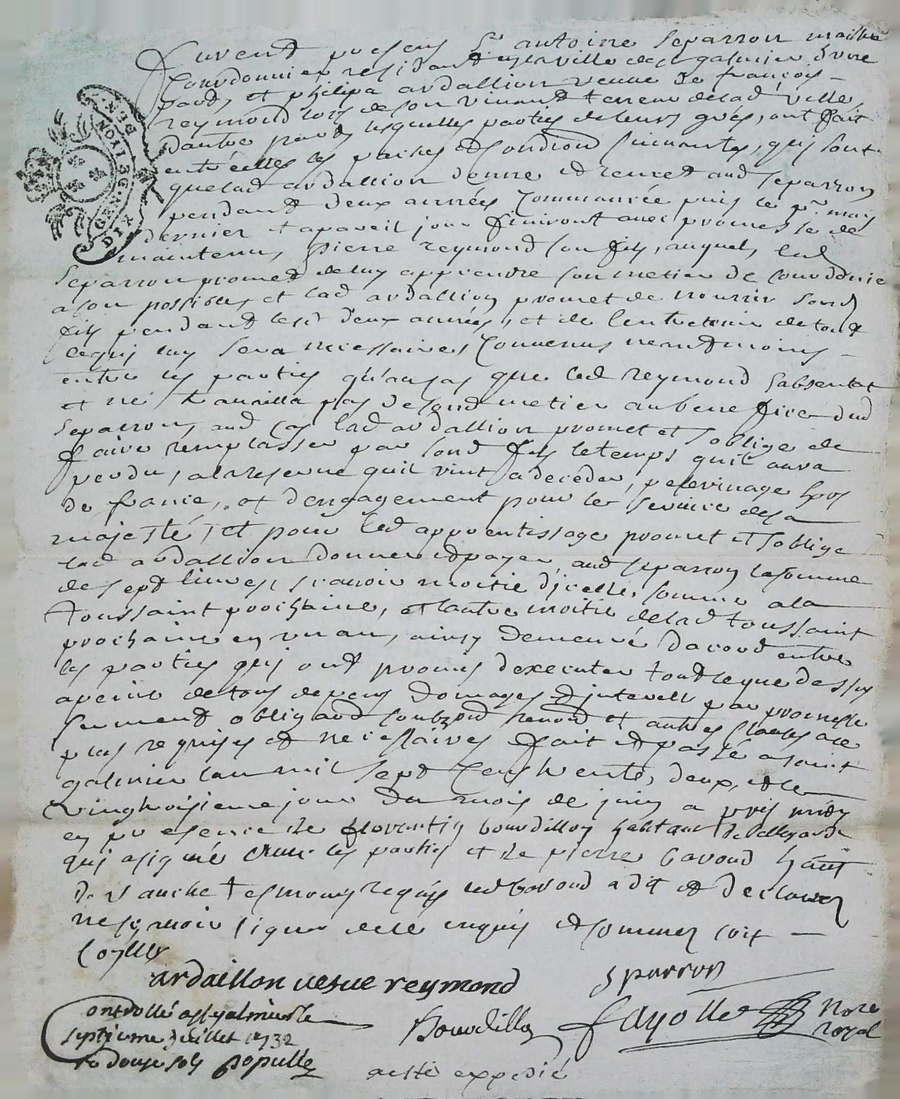 Furent presens Sr antoine separron maitre
Courdonnier residant en la ville de st galmier d'vne
part, et phelipa ardaillion veuve de françois
reymond lors de son vivant terreur delad ville
dautre part, lesquelles parties de leurs grés, ont fait
entre elles les paches et condition suivantes, quj sont
quelad ardallion donne et remet aud separron
pendant deux années Commancée puis le pr may
dernier et apareil jour finiront avec promesse de
maintenir, pierre reymond son fils, auquel, led
separron promet de luy apprendre son metier de courdonnier
a son possible, et lad ardallion promet de nourrir sond
fils pendant lesd deux années, et de lentretenir de tout
cequj luy sera necessaires, Convenus neantmoins
entre les parties qu'encas que led reymond sabsentat
et ne trauailla pas de sond metier aubenefice dud
separron, aud cas lad ardallion promet et soblige de
faire remplasser par sond fils letemps quil aura
perdu, alareserve quil vint adeceder, pelerinage hors
de france, et dengagement pour le service de sa
majesté, et pour led apprentissage promet et soblige
lad ardallion donner et payer aud separron lasomme
de sept livres, scavoir moitié dicelle somme ala
toussaint prochaine, et lautre moitié delad toussaint
prochaine en vn an, ainsy demeuré dacord entre
les parties quj ont promis dexecuter tout ceque dessus
apeine de tous depens domages et interests par promesse
serment obligaon soubzon renon et autres clauses ace
plus requises et necessaires fait et passé a saint
galmier lan mil sept Cens trente, deux, et le
vingtroisieme jour du mois de juin apres midy
en presence de florentin bourdillon habitant de
quj asigné avec les parties et de pierre bavoud habt
de st tesmoins requis led bavoud a dit et declarer
ne scavoir signer de ce enquis et sommer soit
Conllé
ardaillon veuve reymond
sparron
Controllé a st galmier le
septieme juillet 1732
R douze sols populle
Bourdillon
fayolle
Nore
royal
acte expedié
DIX
GEN. ET LYON
DEN.